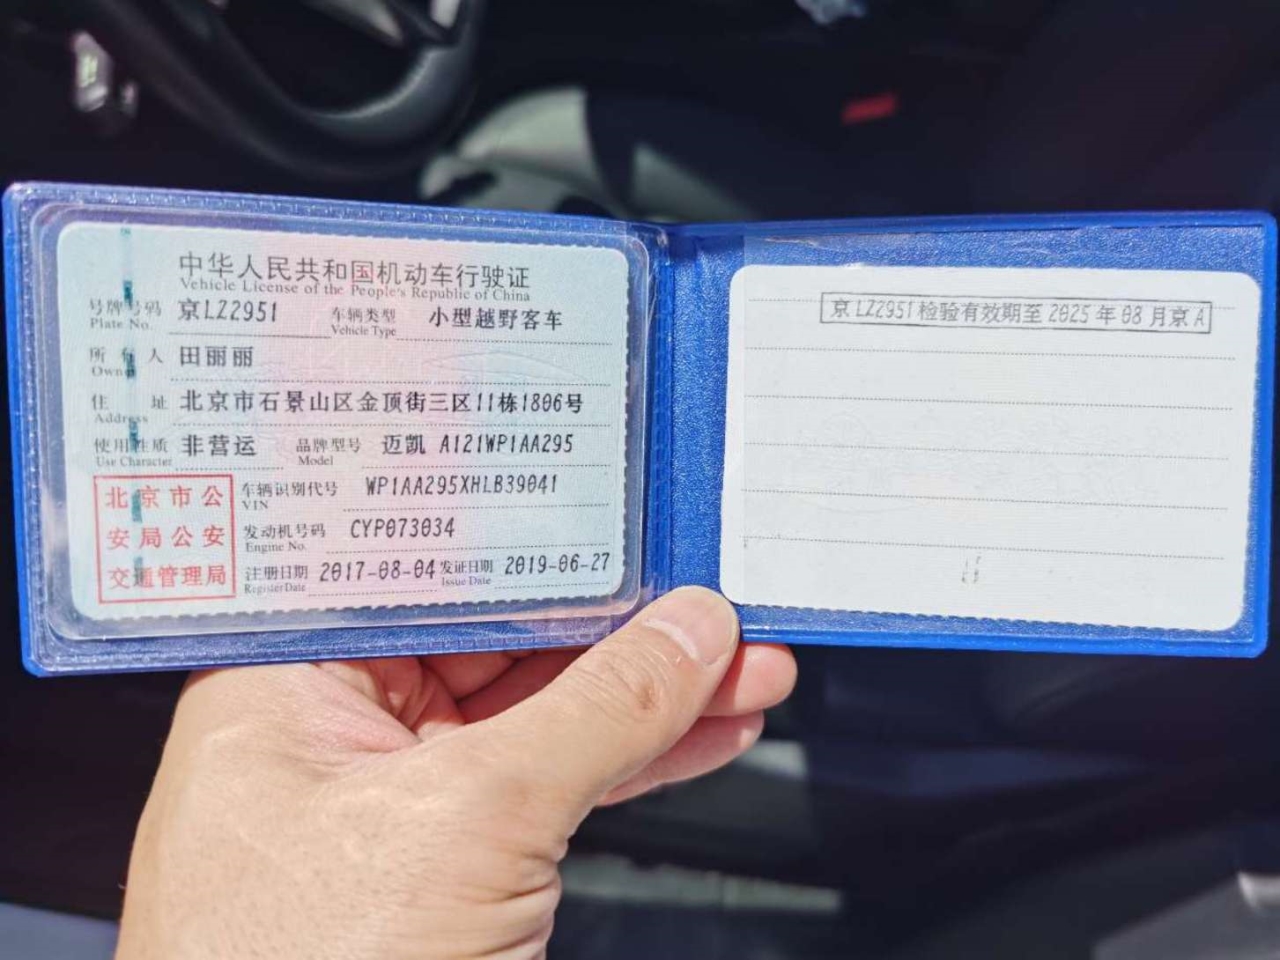 中华人民共和国机动车行驶证
Vehicle License of the People's Republic of China
号牌号码 京LZ2951 车辆类型 小型越野客车
Plate No. Vehicle Type
所有人 田丽丽
Owner
住址 北京市石景山区金顶街三区11栋1806号
Address
使用性质 非营运 品牌型号 迈凯 A121WP1AA295
Use Character Model
北京市公安局公安交通管理局
车辆识别代号 WP1AA295XHLB39041
VIN
发动机号码 CYP073034
Engine No.
注册日期 2017-08-04 发证日期 2019-06-27
Register Date Issue Date
京LZ2951检验有效期至2025年08月京A